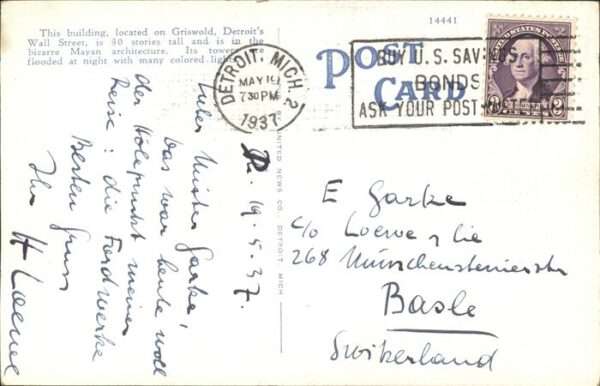 This building, located on Griswold, Detroit's
Wall Street, is 40 stories tall and is in the
bizarre Mayan architecture. Its tower
flooded at night with many colored
14441
POST
CARD
DETROIT, MICH. 2
MAY 19
7 30 PM
1937
BUY U.S. SAVINGS
BONDS
ASK YOUR POST
UNITED STATES
2 2
UNITED NEWS CO., DETROIT, MICH
D. 19.5.37.
Lieber Mister Garke,
das war heute wohl
der Höhepunkt meiner
Reise: die Fordwerke
Besten Gruss
Ihr H Loewe
E Garke
c/o Loewe & Cie
268 Münchensteinerstr
Basle
Switzerland